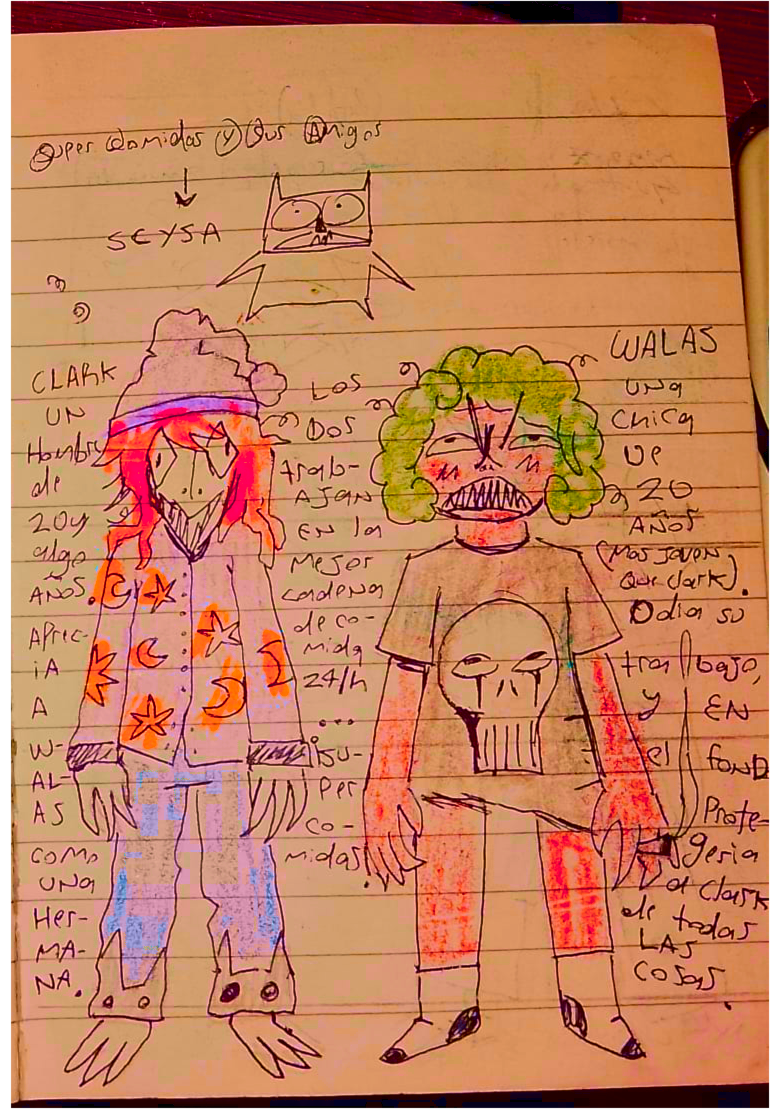 Super Comidas Y Sus Amigos
SCYSA
CLARK
UN
Hombre
de
20 y
algo
AÑOS.
APrec-
iA
A
W-
AL-
AS
como
UNa
Her-
MA-
NA.
LOS
DOS
trab-
AJAN
EN la
Mejor
cadena
de co-
mida
24/h
...
¡SU-
Per
co-
midas!
WALAS
UNa
Chica
De
20
AÑOS
(Mas joven
que clark).
Odia su
trabajo,
y EN
el fondo
Prote-
geria
a Clark
de todas
LAS
cosas.